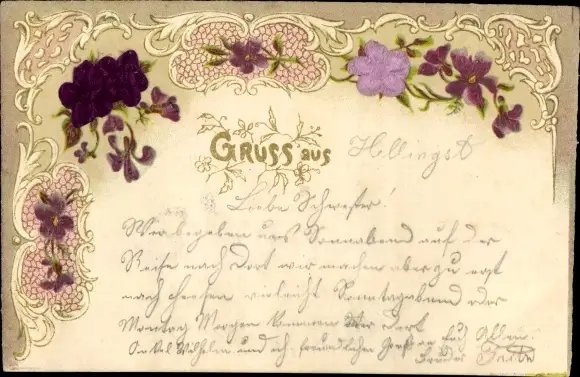 Gruss aus Hollingst
Liebe Schwester!
Wir begeben uns Sonnabend auf der
Reise nach dort wir machen aber zu erst
nach vieleicht Sonntagabend oder
Montag Morgen kommen wir dort
Onkel Wilhelm und ich. freundlichen Gruß an Euch Allen.
Bruder